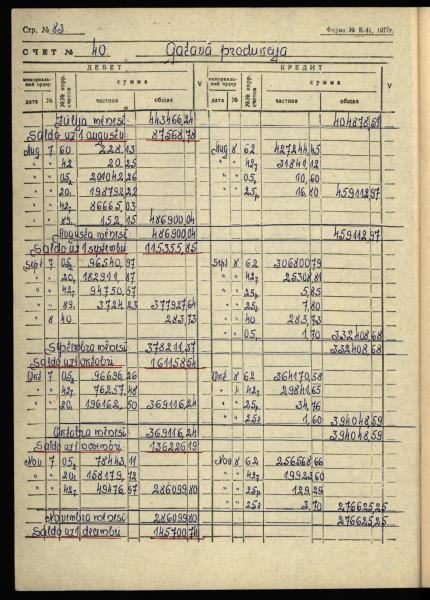 Стр. № 83 Форма № К-41, 1977г.
СЧЕТ № 40. Gatavā produkcija
ДЕБЕТ КРЕДИТ
мемориаль-ный ордер №№ корр. счетов сумма V мемориаль-ный ордер №№ корр. счетов сумма
дата № частная общая дата № частная общая
Jūlja mēnesī 443466,24 404878,51
Saldo uz 1 augustu 87568,78
Aug 7 60 228,13 Aug 8 62 427244,45
" " 42 20,25 " " 42₇ 31841,12
" " 05₂ 201042,26 " " 05₁ 10,60
" " 20₁ 198792,22 " " 25₂ 16,80 459112,97
" " 42₁ 86665,03
" " 89₁ 152,15 486900,04
Augusta mēnesī 486900,04 459112,97
Saldo uz 1 septembri 115355,85
Sept 7 05₂ 96540,97 Sept 8 62 306800,79
" " 20₁ 182911,87 " " 42₇ 25308,81
" " 42₇ 94750,57 " " 25₂ 5,85
" " 89₁ 3724,23 377927,64 " " 25₁ 7,80
" 8 40 283,73 " " 40 283,73
" " 05₁ 1,70 332408,68
Septembra mēnesī 378211,37 332408,68
Saldo uz 1 oktobri 161158,54
Okt 7 05₂ 96696,26 Okt 8 62 364170,58
" " 42₇ 76257,48 " " 42₇ 29841,65
" " 20₁ 196162,50 369116,24 " " 25₂ 34,76
" " 25₁ 1,60 394048,59
Oktobra mēnesī 369116,24 394048,59
Saldo uz 1 novembri 136226,19
Nov 7 05₂ 78443,11 Nov 8 62 256568,66
" " 20₁ 158179,72 " " 42₇ 19923,60
" " 42₇ 49476,97 286099,80 " " 25₂ 129,29
" " 25₁ 3,70 276625,25
Novembra mēnesī 286099,80 276625,25
Saldo uz 1 decembri 145700,74